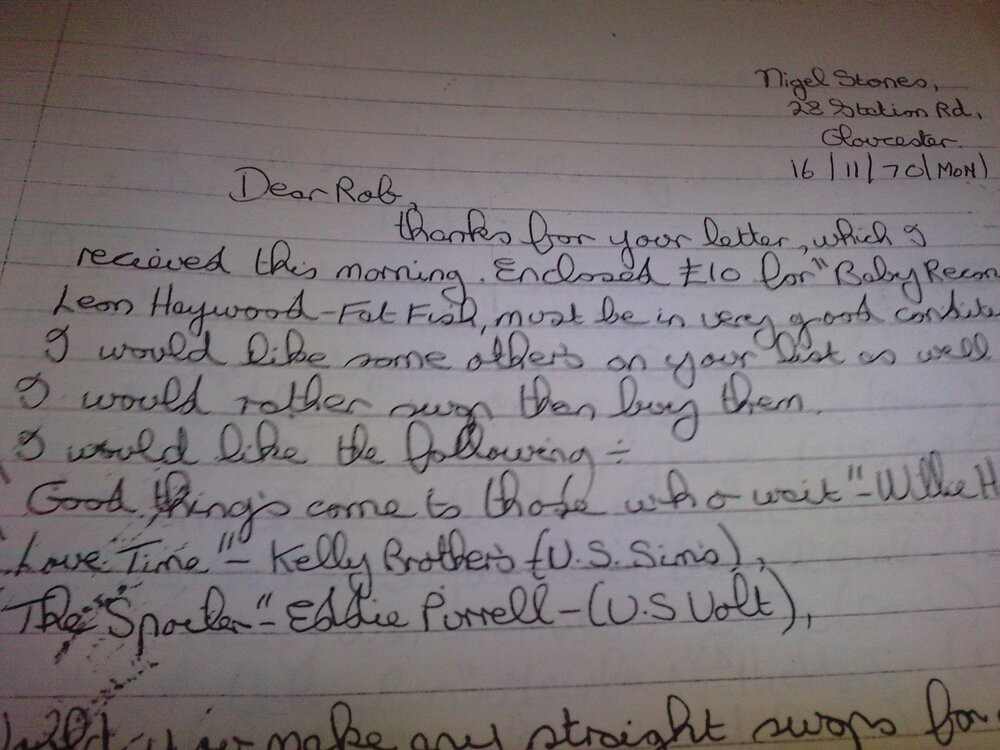 Nigel Stones,
28 Station Rd,
Gloucester.
16/11/70 (MON)
Dear Rob,
thanks for your letter, which I
recieved this morning. Enclosed £10 for "Baby Recon
Leon Haywood - Fat Fish, must be in very good condit
I would like some others on your list as well
I would rather swop then buy them.
I would like the following ÷
Good things come to those who wait" - Willie H
Love Time" - Kelly Brothers (U.S. Sims),
The "Spoiler" - Eddie Purrell - (U.S Volt),
make any straight swops for